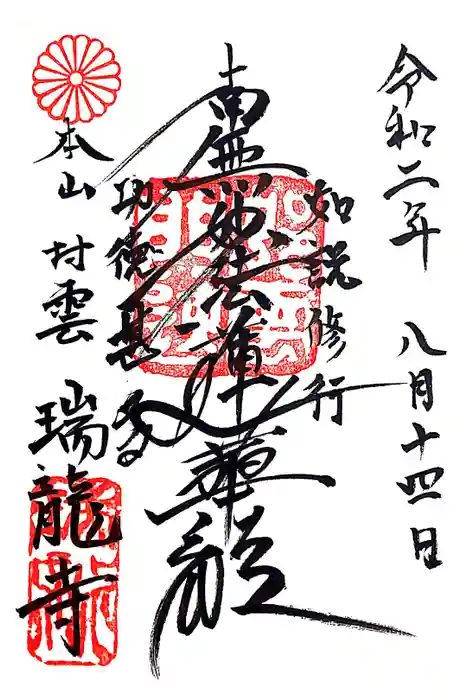 令和二年 八月十四日
如説修行
南無妙法蓮華経
功徳甚多
本山 村雲 瑞龍寺